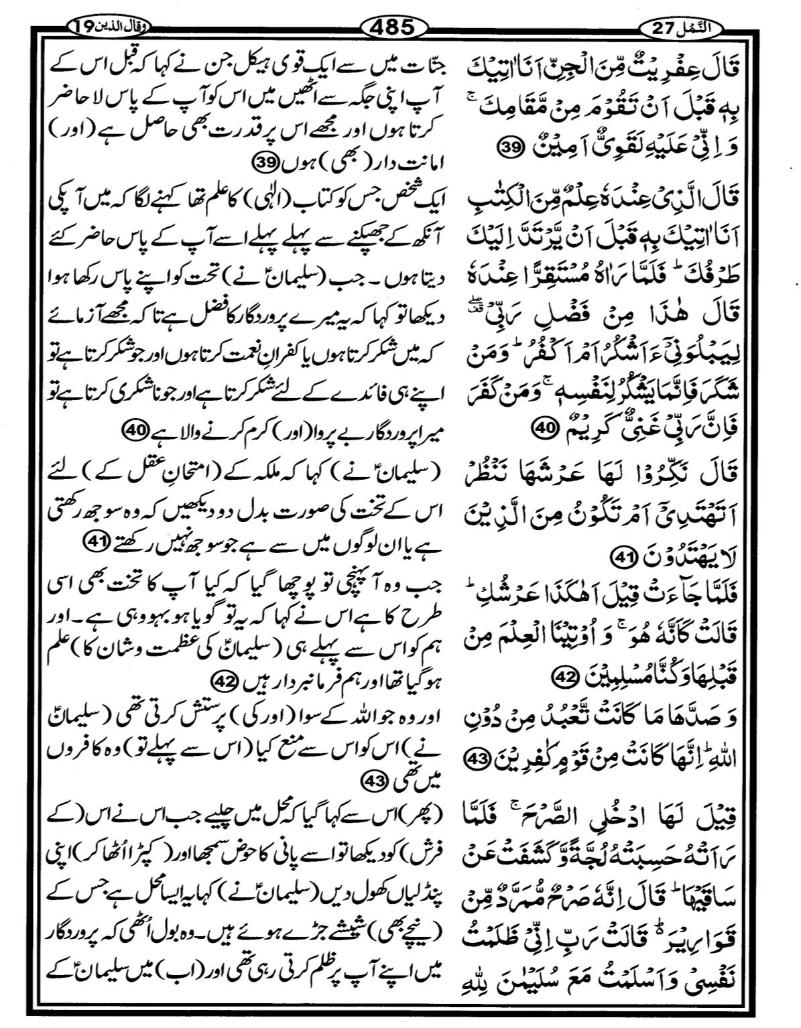 النَّمْل 27
485
وَقَالَ الَّذِينَ 19
قَالَ عِفْرِيْتٌ مِّنَ الْجِنِّ اَنَا اٰتِيْكَ
بِهٖ قَبْلَ اَنْ تَقُوْمَ مِنْ مَّقَامِكَ ۚ
وَ اِنِّىْ عَلَيْهِ لَقَوِىٌّ اَمِيْنٌ 39
قَالَ الَّذِىْ عِنْدَهٗ عِلْمٌ مِّنَ الْكِتٰبِ
اَنَا اٰتِيْكَ بِهٖ قَبْلَ اَنْ يَّرْتَدَّ اِلَيْكَ
طَرْفُكَ ؕ فَلَمَّا رَاٰهُ مُسْتَقِرًّا عِنْدَهٗ
قَالَ هٰذَا مِنْ فَضْلِ رَبِّىْ ۖ
لِيَبْلُوَنِىْٓ ءَاَشْكُرُ اَمْ اَكْفُرُ ؕ وَمَنْ
شَكَرَ فَاِنَّمَا يَشْكُرُ لِنَفْسِهٖ ۚ وَمَنْ كَفَرَ
فَاِنَّ رَبِّىْ غَنِىٌّ كَرِيْمٌ 40
قَالَ نَكِّرُوْا لَهَا عَرْشَهَا نَنْظُرْ
اَتَهْتَدِىْٓ اَمْ تَكُوْنُ مِنَ الَّذِيْنَ
لَا يَهْتَدُوْنَ 41
فَلَمَّا جَآءَتْ قِيْلَ اَهٰكَذَا عَرْشُكِ ؕ
قَالَتْ كَاَنَّهٗ هُوَ ۚ وَ اُوْتِيْنَا الْعِلْمَ مِنْ
قَبْلِهَا وَ كُنَّا مُسْلِمِيْنَ 42
وَ صَدَّهَا مَا كَانَتْ تَّعْبُدُ مِنْ دُوْنِ
اللّٰهِ ؕ اِنَّهَا كَانَتْ مِنْ قَوْمٍ كٰفِرِيْنَ 43
قِيْلَ لَهَا ادْخُلِى الصَّرْحَ ۚ فَلَمَّا
رَاَتْهُ حَسِبَتْهُ لُجَّةً وَّكَشَفَتْ عَنْ
سَاقَيْهَا ؕ قَالَ اِنَّهٗ صَرْحٌ مُّمَرَّدٌ مِّنْ
قَوَارِيْرَ ۬ؕ قَالَتْ رَبِّ اِنِّىْ ظَلَمْتُ
نَفْسِىْ وَ اَسْلَمْتُ مَعَ سُلَيْمٰنَ لِلّٰهِ
جنّات میں سے ایک قوی ہیکل جن نے کہا کہ قبل اس کے
آپ اپنی جگہ سے اٹھیں میں اس کو آپ کے پاس لا حاضر
کرتا ہوں اور مجھے اس پر قدرت بھی حاصل ہے (اور)
امانت دار (بھی) ہوں 39
ایک شخص جس کو کتاب (الٰہی) کا علم تھا کہنے لگا کہ میں آپکی
آنکھ کے جھپکنے سے پہلے پہلے اسے آپ کے پاس حاضر کئے
دیتا ہوں۔ جب (سلیمانؑ نے) تخت کو اپنے پاس رکھا ہوا
دیکھا تو کہا کہ یہ میرے پروردگار کا فضل ہے تاکہ مجھے آزمائے
کہ میں شکر کرتا ہوں یا کفرانِ نعمت کرتا ہوں اور جو شکر کرتا ہے تو
اپنے ہی فائدے کے لئے شکر کرتا ہے اور جو ناشکری کرتا ہے تو
میرا پروردگار بے پروا (اور) کرم کرنے والا ہے 40
(سلیمانؑ نے) کہا کہ ملکہ کے (امتحانِ عقل کے) لئے
اس کے تخت کی صورت بدل دو دیکھیں کہ وہ سوجھ رکھتی
ہے یا ان لوگوں میں سے ہے جو سوجھ نہیں رکھتے 41
جب وہ آ پہنچی تو پوچھا گیا کہ کیا آپ کا تخت بھی اسی
طرح کا ہے اس نے کہا کہ یہ تو گویا ہو بہو وہی ہے۔ اور
ہم کو اس سے پہلے ہی (سلیمانؑ کی عظمت و شان کا) علم
ہو گیا تھا اور ہم فرمانبردار ہیں 42
اور وہ جو اللہ کے سوا (اور کی) پرستش کرتی تھی (سلیمانؑ
نے) اس کو اس سے منع کیا (اس سے پہلے تو) وہ کافروں
میں تھی 43
(پھر) اس سے کہا گیا کہ محل میں چلیے جب اس نے اس (کے
فرش) کو دیکھا تو اسے پانی کا حوض سمجھا اور (کپڑا اٹھا کر) اپنی
پنڈلیاں کھول دیں (سلیمانؑ نے) کہا یہ ایسا محل ہے جس کے
(نیچے بھی) شیشے جڑے ہوئے ہیں۔ وہ بول اٹھی کہ پروردگار
میں اپنے آپ پر ظلم کرتی رہی تھی اور (اب) میں سلیمانؑ کے